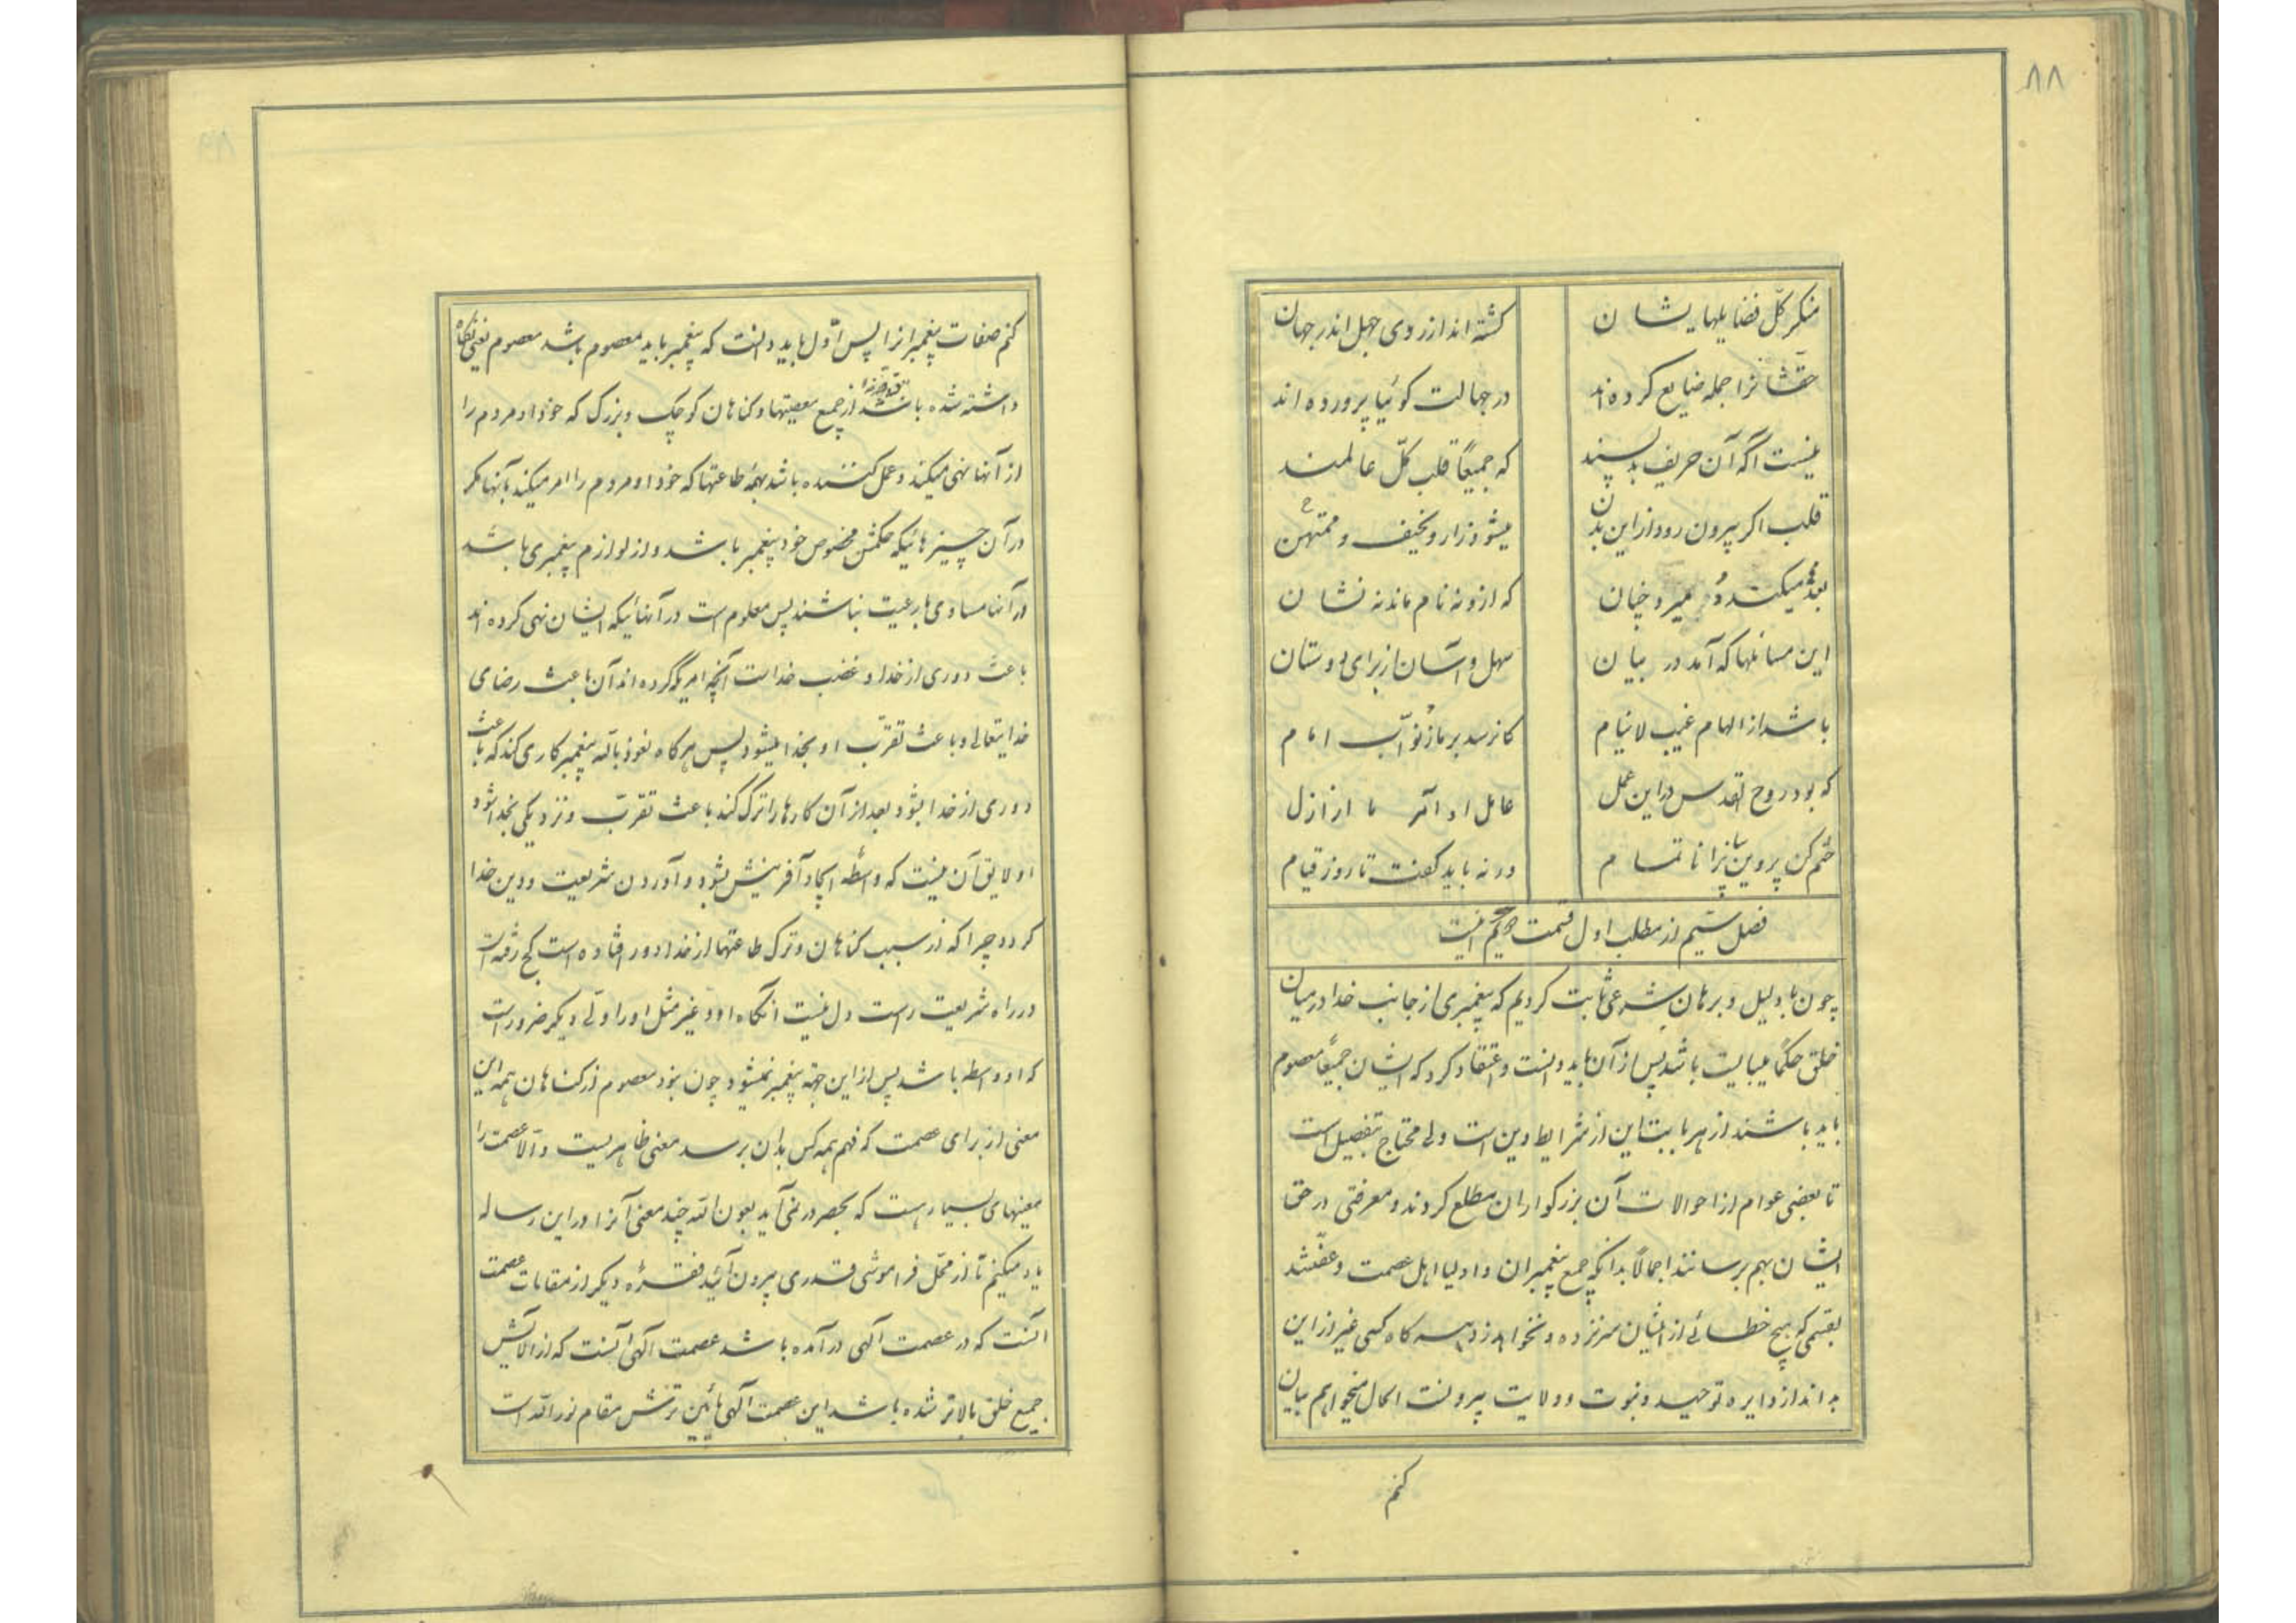 ۸۸
منکر کلّ فضایلهایشان
کشته اند از روی جهل اندر جهان
حقّشانرا جمله ضایع کرده اند
در جهالت کوئیا پرورده اند
نیست اگه آن حریف بد پسند
که جمیعاً قلب کلّ عالمند
قلب اکر بیرون رود از این بدن
میشود زار و نحیف و ممتهن
که از و نه نام ماند نه نشان
این مسائلها که آمد در بیان
سهل و آسان از برای دوستان
باشد از الهام غیب لاینام
کانرسد بر ما ز نوّاب امام
که بود روح القدس در این عمل
عامل او آمر ما از ازل
ختم کن پروین بیانرا ناتمام
ورنه باید کفت تا روز قیام
فصل سیّم از مطلب اول قسمت
چون با دلیل و برهان شرعی ثابت کردیم که پیغمبری از جانب خدا در میان
خلق حکماً میبایست باشد پس از آن باید دانست و اعتقاد کرد که ایشان جمیعاً معصوم
باید باشند از هر بابت این از شرایط دین است ولی محتاج بتفصیل است
تا بعضی عوام از احوالات آن بزرکواران مطلع کردند و معرفتی در حق
ایشان بهم برسانند اجمالاً بدانکه جمیع پیغمبران و اولیا اهل عصمت و عفّتند
بقسمی که هیچ خطائی از ایشان سر نزده و نخواهد زد هر کاه کسی غیر از این
بداند از دایره توحید و نبوت و ولایت بیرونست الحال میخواهم بیان
کنم
۸۹
کنم صفات پیغمبرانرا پس اوّل باید دانست که پیغمبر باید معصوم باشد معصوم یعنی نکاه
داشته شده باشد از جمیع معصیتها و کناهان کوچک و بزرک که خود او مردم را
از آنها نهی میکند و عمل کننده باشد بهمه طاعتها که خود او مردم را امر میکند بآنها مکر
در آن چیزهائیکه حکمش مخصوص خود پیغمبر باشد و از لوازم پیغمبری باشد
در آنها مساوی با رعیت نباشند پس معلوم است در آنهائیکه ایشان نهی کرده اند
باعث دوری از خدا و غضب خداست آنچه امر کرده اند آن باعث رضای
خدایتعالی و باعث تقرّب او بخدا میشود پس هر کاه نعوذ بالله پیغمبر کاری کند که باعث
دوری از خدا بشود بعد از آن کارها را ترک کند باعث تقرّب و نزدیکی بخدا شود
او لایق آن نیست که واسطه ایجاد آفرینش بشود و آوردن شریعت و دین خدا
کردد چرا که از سبب کناهان و ترک طاعتها از خدا دور افتاده است کج رفته است
در راه شریعت راست دل نیست آنکاه او و غیر مثل او را ولی دیکر ضرور است
که او واسطه باشد پس از این جهة پیغمبر نمیشود چون نبود معصوم از کناهان همه این
معنی از برای عصمت که فهم همه کس بدان برسد معنی ظاهریست والّا عصمت را
معنیهای بسیار هست که بحصر در نمی آید بعون الله چند معنی آنرا در این رساله
یاد میکنیم تا از محل فراموشی قدری بیرون آئید فقره دیکر از مقامات عصمت
آنست که در عصمت آلهی در آمده باشد عصمت آلهی آنست که از آلایش
جمیع خلق بالاتر شده باشد این عصمت آلهی پائین ترش مقام نورالله است